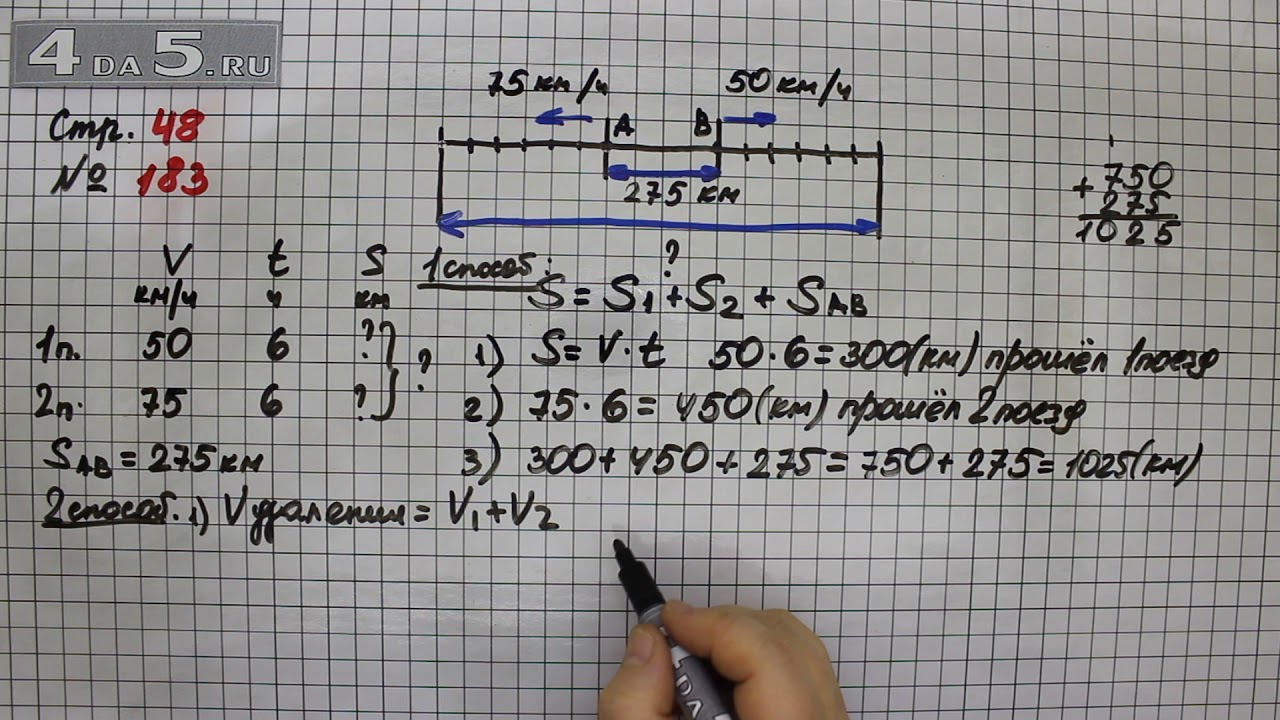 4 DA 5.RU
Стр. 48
№ 183
75 км/ч
50 км/ч
A
B
275 км
?
750
+ 275
1025
V t S
км/ч ч км
1п. 50 6 ?
2п. 75 6 ?
?
SAB = 275 км
1 способ:
S = S1 + S2 + SAB
1) S = V · t 50 · 6 = 300 (км) прошёл 1 поезд
2) 75 · 6 = 450 (км) прошёл 2 поезд
3) 300 + 450 + 275 = 750 + 275 = 1025 (км)
2 способ. 1) V удаления = V1 + V2